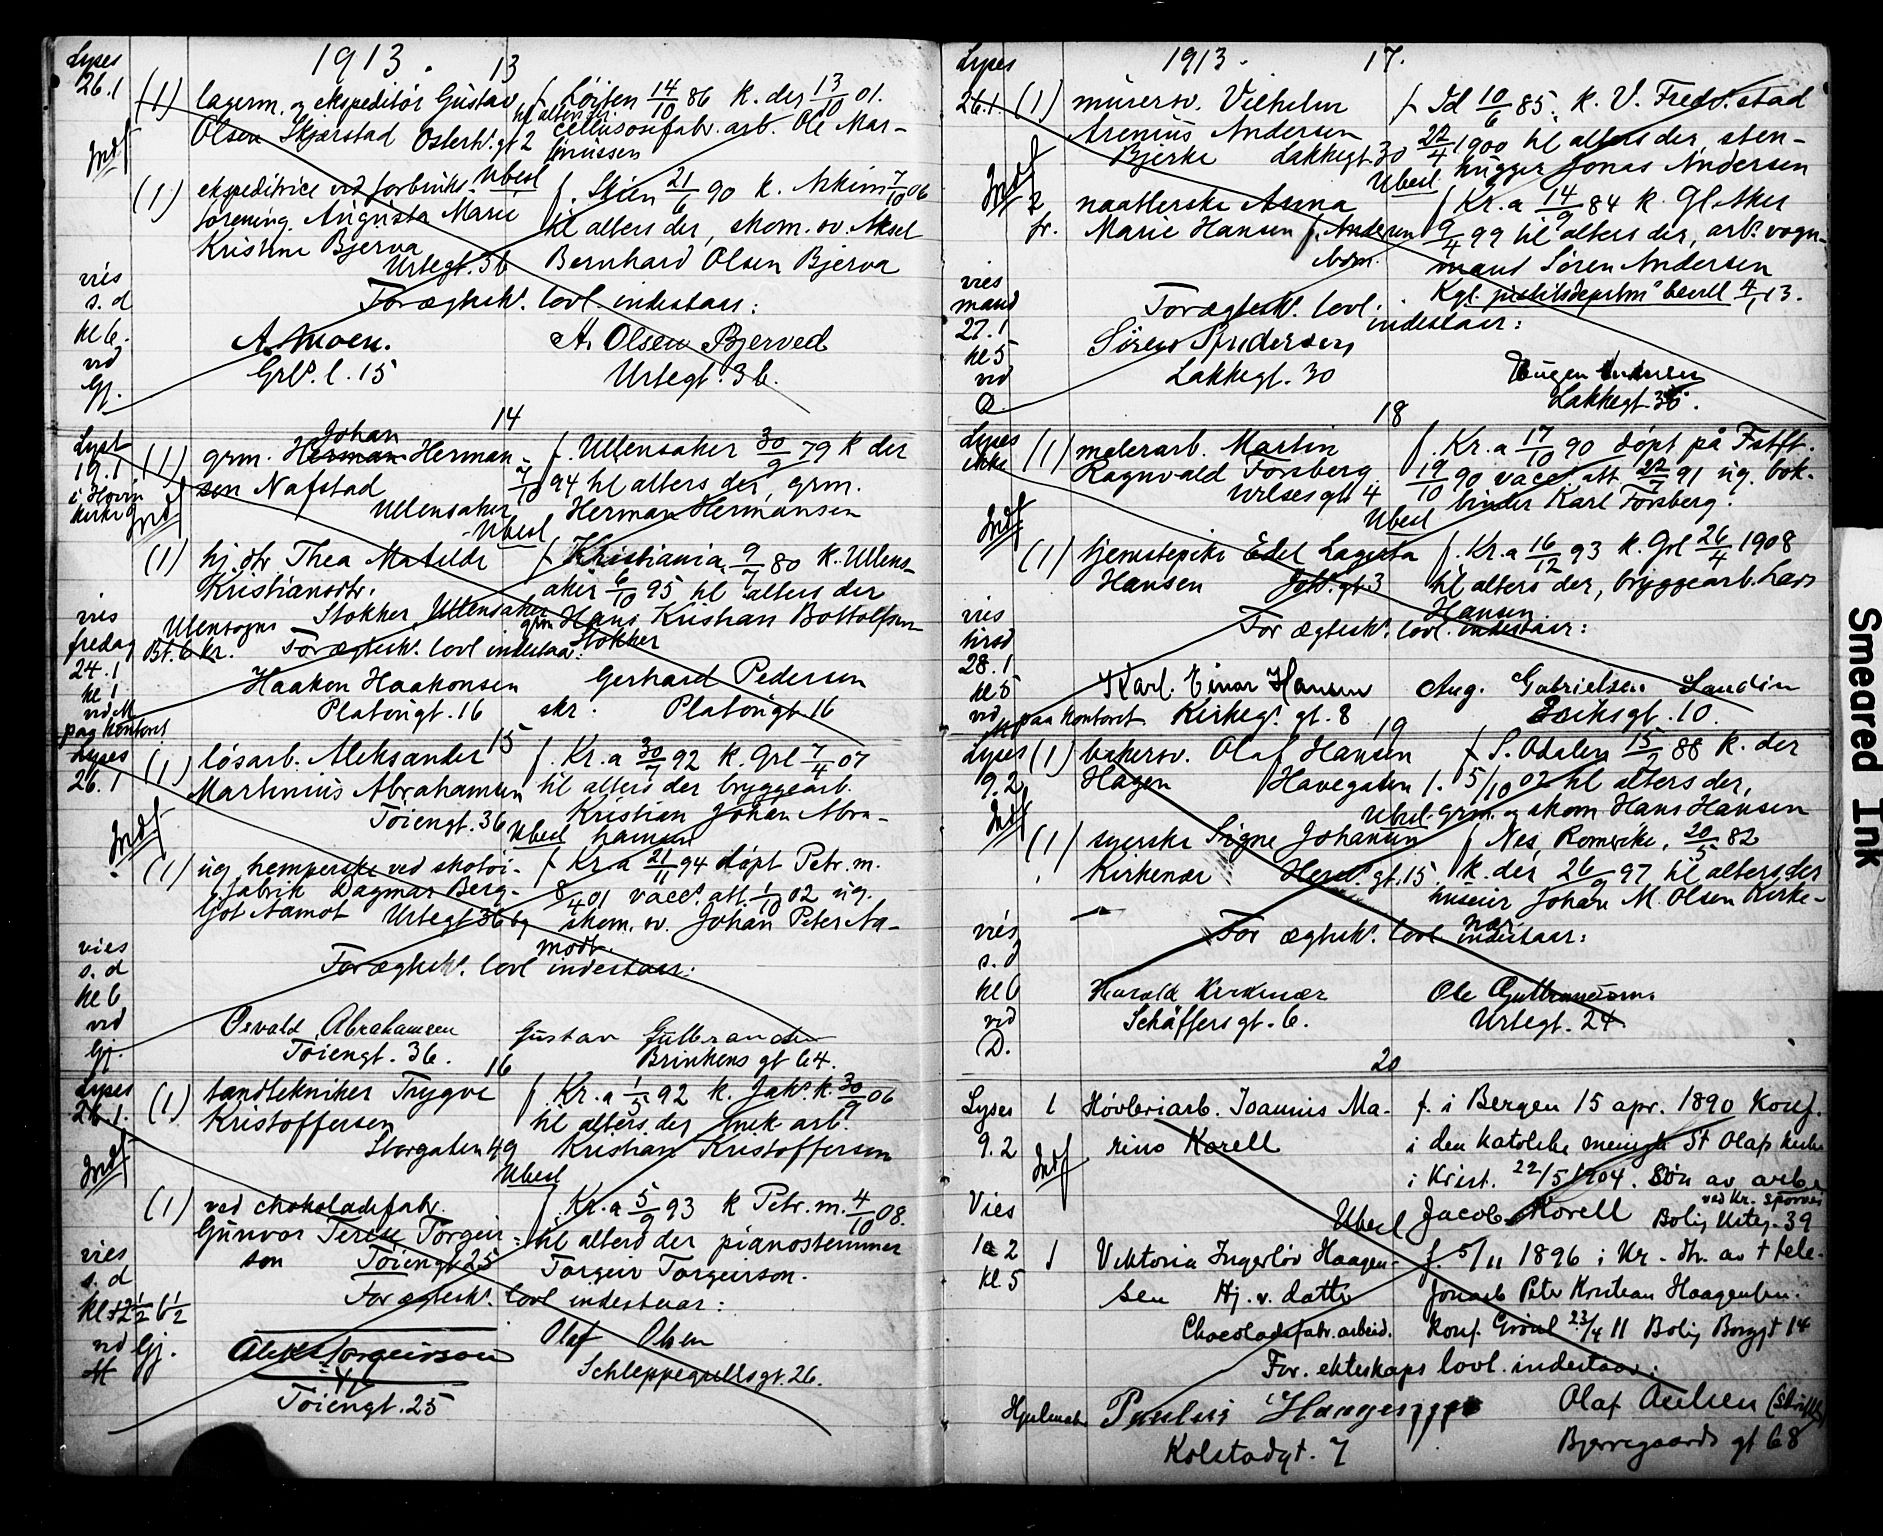 1913. 13
Lyses
26.1
(1) lagerm. og ekspeditør Gustav
Olsen Skjærstad Osterh. gt 2
f. Løiten 14/10 86 k. der 13/10 01.
til alters der.
cellulosefabr. arb. Ole Mar-
tinussen
Indf
Ubesl
(1) ekspeditrice ved forbruks-
forening Augusta Marie
Kristine Bjerva
Urtegt. 36
f. Skien 21/6 90 k. Askim 7/10 06
til alters der, skom. sv. Aksel
Bernhard Olsen Bjerva
vies
s. d
kl 6.
vid
Gj.
For ægtesk. lovl indestaar:
A. Moen.
Grl. l. 15
A. Olsen Bjerved
Urtegt. 36.
14
Lyst
19.1
i Hovin
kirke
Indf
(1) grm. Herman Johan Herman-
sen Nafstad
Ullensaker
f. Ullensaker 30/9 79 k der
7/10 94 til alters der, grm.
Herman Hermansen
Ubesl
(1) hj. dtr Thea Matilde
Kristiansdtr.
Stokker, Ullensaker
f. Kristiania 9/7 80 k. Ullens-
aker 6/10 95 til alters der
grm Hans Kristian Bottolfsen
Stokker
vies
fredag
24.1
kl 1
vid M
paa kontoret
Utensogns
Bt. 6 kr.
For ægtesk. lovl indestaar:
Haakon Haakonsen
Platougt. 16
Gerhard Pedersen
skr. Platougt. 16
15
Lyses
26.1
Indf
(1) løsarb. Aleksander
Martinius Abrahamsen
Tøiengt. 36
f. Kr.a 30/7 92 k. Grl 7/4 07
til alters der bryggearb.
Kristian Johan Abra-
hamsen
Ubesl
(1) ug. hemperske ved skotøi-
fabrik Dagmar Berg-
ljot Aamot Urtegt 36 b
f. Kr.a 21/11 94 døpt Petr. m.
8/4 01 vacc. att. 1/10 02 ug.
skom. sv. Johan Peter Aa-
modt
vies
s. d
kl 6
vid
Gj.
For ægtesk. lovl indestaar:
Osvald Abrahamsen
Tøiengt. 36.
Gustav Gulbrandsen
Brinkens gt 64.
16
Lyses
26.1.
Indf
(1) tandtekniker Trygve
Kristoffersen
Storgaten 49
f. Kr.a 1/5 92 k. Jak. k. 30/9 06
til alters der mek. arb.
Kristian Kristoffersen
Ubesl
(1) ved chokoladefabr.
Gunvor Terese Torgeir-
son Tøiengt 25
f. Kr.a 5/9 93 k Petr. m. 4/10 08.
til alters der pianostemmer
Torgeir Torgeirson.
vies
s. d
kl 6 1/2
vid Gj.
For ægtesk. lovl indestaar:
Tøiengt. 25
Olaf Olsen
Schleppegrellsgt. 26.
1913. 17.
Lyses
26.1.
Indf
(1) murersv. Vilhelm
Arenius Andersen
Bjerke Lakkegt. 30
f. Id 10/6 85. k. V. Fredr.stad
22/4 1900 til alters der, sten-
hugger Jonas Andersen
Ubesl.
2
fr.
naatlerske Anna
Marie Hansen f. Andersen
f. Kr.a 14/9 84 k. Gl Aker
9/4 99 til alters der, arb. vogn-
mand Søren Andersen
Kgl. justitsdeprtm" bevill 4/1 13.
vies
mand
27.1
kl 5
vid
For ægtesk. lovl.
indestaar:
Søren Andersen
Lakkegt. 30
Eugen Andersen
Lakkegt 30.
18
Lyses
ikke
Indf
(1) malerarb. Martin
Ragnvald Forsberg
Urtesgt. 4
f. Kr.a 17/10 90 døpt på Fatft.
19/10 90 vacc. att. 22/7 91 ug. bok-
binder Karl Forsberg.
Ubesl
(1) tjenestepike Edel Lagerta
Hansen Joh. gt. 3
f. Kr.a 16/12 93 k. Grl 26/4 1908
til alters der, bryggearb. Lars
Hansen
vies
tirsd
28.1
kl 5
vid M paa kontoret
For ægtesk. lovl. indestaar:
Karl Einar Hansen
Kirkeg. gt. 8
Aug. Gabrielsen Sandin
Eriksgt. 10.
19
Lyses
9.2
Indf
(1) bakersv. Olaf Hansen
Hagen Havegaten 1.
f. S. Odalen 15/2 88 k. der
5/10 02 til alters der,
grm. og skom Hans Hansen
Ubesl.
(1) syerske Signe Johansen
Kirkenær Hersl. gt. 15
f. Nes Romerike, 20/5 82
k. der 26/9 97 til alters der
murer Johan M. Olsen Kirke-
nær
vies
s. d
kl 6
vid
D.
For ægtesk. lovl indestaar:
Harald Kirkenær
Schäffersgt. 6.
Ole Gulbrandsen
Urtegt. 24
20
Lyses
9.2
Indf
1 Høvleriarb. Joannis Ma-
rius Korell
f. i Bergen 15 apr. 1890 Konf.
i den katolske menigh St Olafs kirke
i Krist. 22/5 1904. Søn av arb.
ved Kr. sporvei
Jacob Korell Bolig Urteg. 39
Ubesl
Vies
kl 5
1 Viktoria Ingerløv Haagen-
sen Hj. v. datter
Chocoladefabr. arbeid.
f. 5/11 1896 i Kr. - Dtr. av † tele-
Peter Kristian Haagensen.
Konf. Grønl 23/4 11 Bolig Borggt 14
For. ekteskaps lovl. indestaar:
Hjelmst. Paulus Haagensen
Kolstadgt. 7
Olaf Aulsen
Bjerregaards gt 68
Smeared Ink